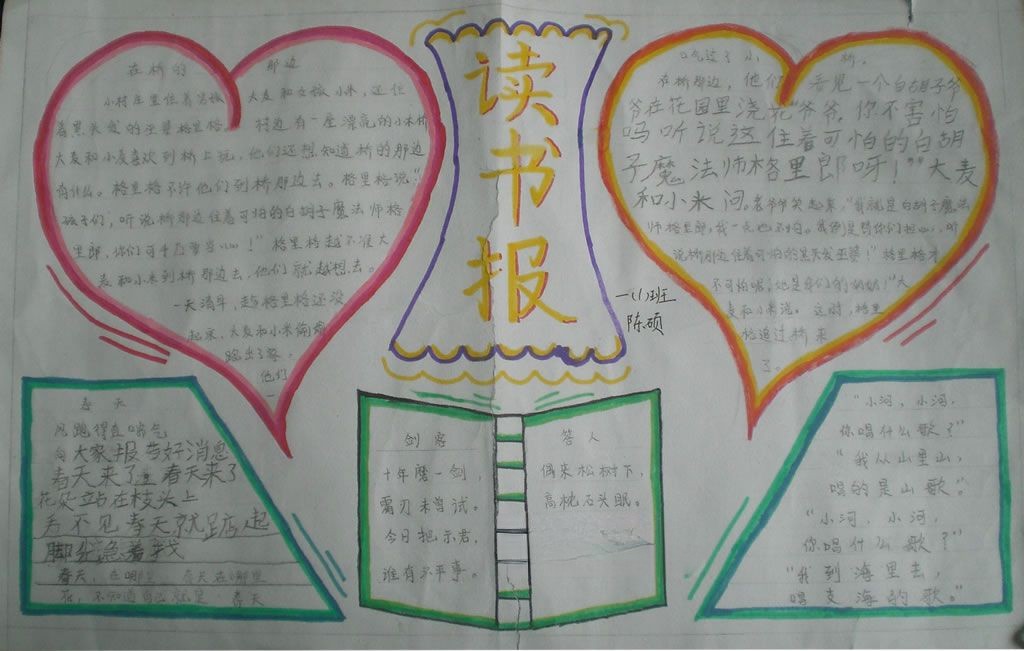 读书报
一(1)班
陈硕
在桥的 那边
小村庄里住着男孩 大麦和女孩小米,还住
着黑头发的巫婆格里格。 村边有一座漂亮的小木桥
大麦和小麦喜欢到桥上玩,他们还想知道桥的那边
有什么。格里格不许他们到桥那边去。格里格说:“
孩子们,听说桥那边住着可怕的白胡子魔法师格
里郎,你们可千万要当心!”格里格越不准大
麦和小米到桥那边去,他们就越想去。
一天清早,趁格里格还没
起床,大麦和小米偷偷
跑出了家,
他们
一
口气过了小 桥。
在桥那边,他们 看见一个白胡子爷
爷在花园里浇花“爷爷,你不害怕
吗听说这住着可怕的白胡
子魔法师格里郎呀!”大麦
和小米问。老爷爷笑起来,“我就是白胡子魔法
师格里郎,我一点也不怕。我倒是替你们担心,听
说桥那边住着可怕的黑头发巫婆!”格里格才
不可怕呢,她是我们的奶奶!”大
麦和小米说。这时,格里
格追过桥来
了。
春天
风跑得直喘气
向大家报告好消息
春天来了 春天来了
花朵站在枝头上
看不见春天就踮起
脚尖急着找
春天,在哪里 春天在哪里
花,不知道自己就是 春天
剑客
十年磨一剑,
霜刃未曾试。
今日把示君,
谁有不平事。
答人
偶来松树下,
高枕石头眠。
“小河,小河,
你唱什么歌?”
“我从山里出,
唱的是山歌。”
“小河,小河,
你唱什么歌?”
“我到海里去,
唱支海的歌。”